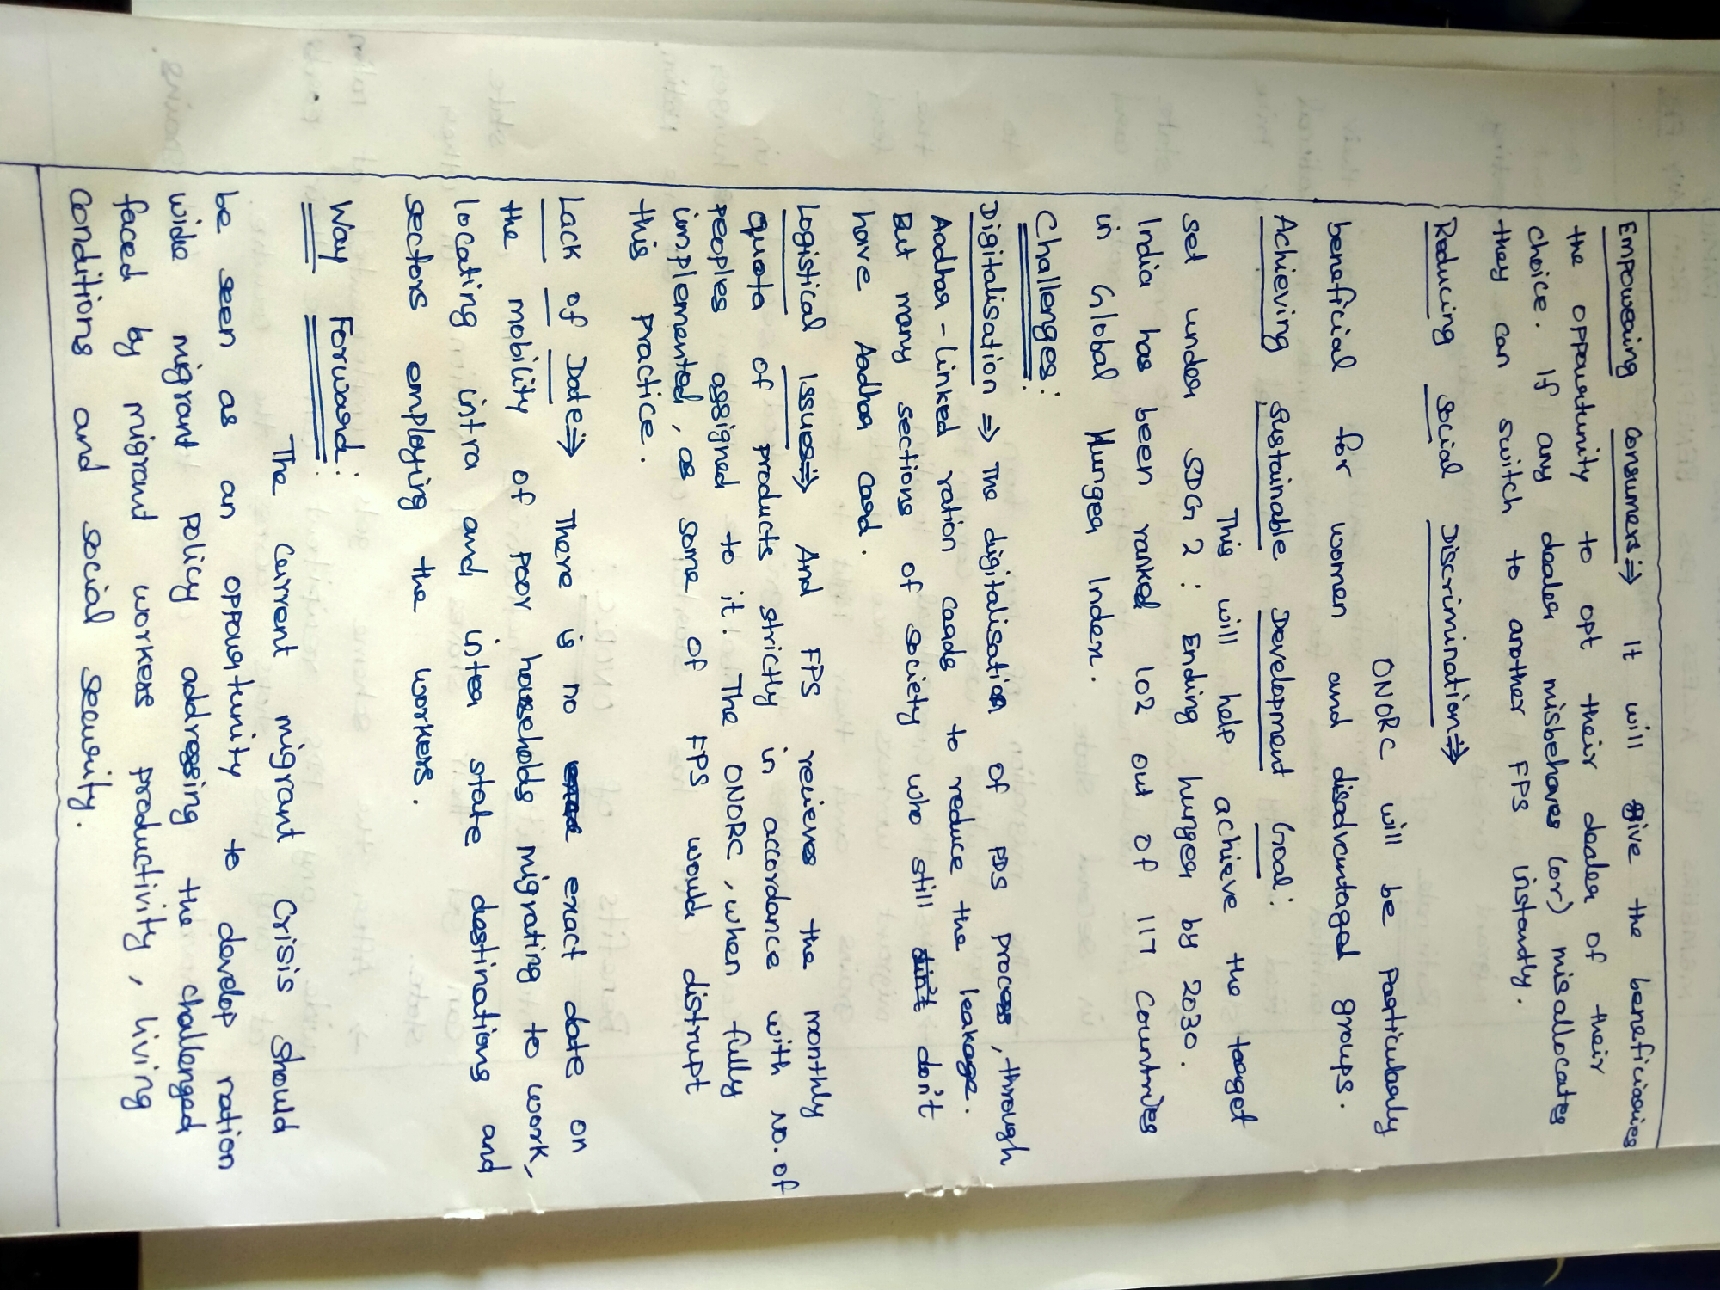 Empowering consumers ⇒ It will give the beneficiaries
the opportunity to opt their dealer of their
choice. If any dealer misbehaves (or) misallocates
they can switch to another FPS instantly.
Reducing social Discrimination ⇒
ONORC will be particularly
beneficial for women and disadvantaged groups.
Achieving Sustainable Development Goal:
This will help achieve the target
set under SDG 2: Ending hunger by 2030.
India has been ranked 102 out of 117 Countries
in Global Hunger Index.
Challenges:
Digitalisation ⇒ The digitalisation of PDS process, through
Aadhar-linked ration cards to reduce the leakage.
But many sections of society who still don't
have Aadhar card.
Logistical Issues ⇒ And FPS recieves the monthly
quota of products strictly in accordance with no. of
peoples assigned to it. The ONORC, when fully
implemented, as some of FPS would distrupt
this practice.
Lack of Date ⇒ There is no exact date on
the mobility of poor households migrating to work,
locating intra and inter state destinations and
sectors employing the workers.
Way Forward:
The current migrant Crisis should
be seen as an opportunity to develop ration
wide migrant policy addressing the challenged
faced by migrant workers productivity, living
conditions and social security.